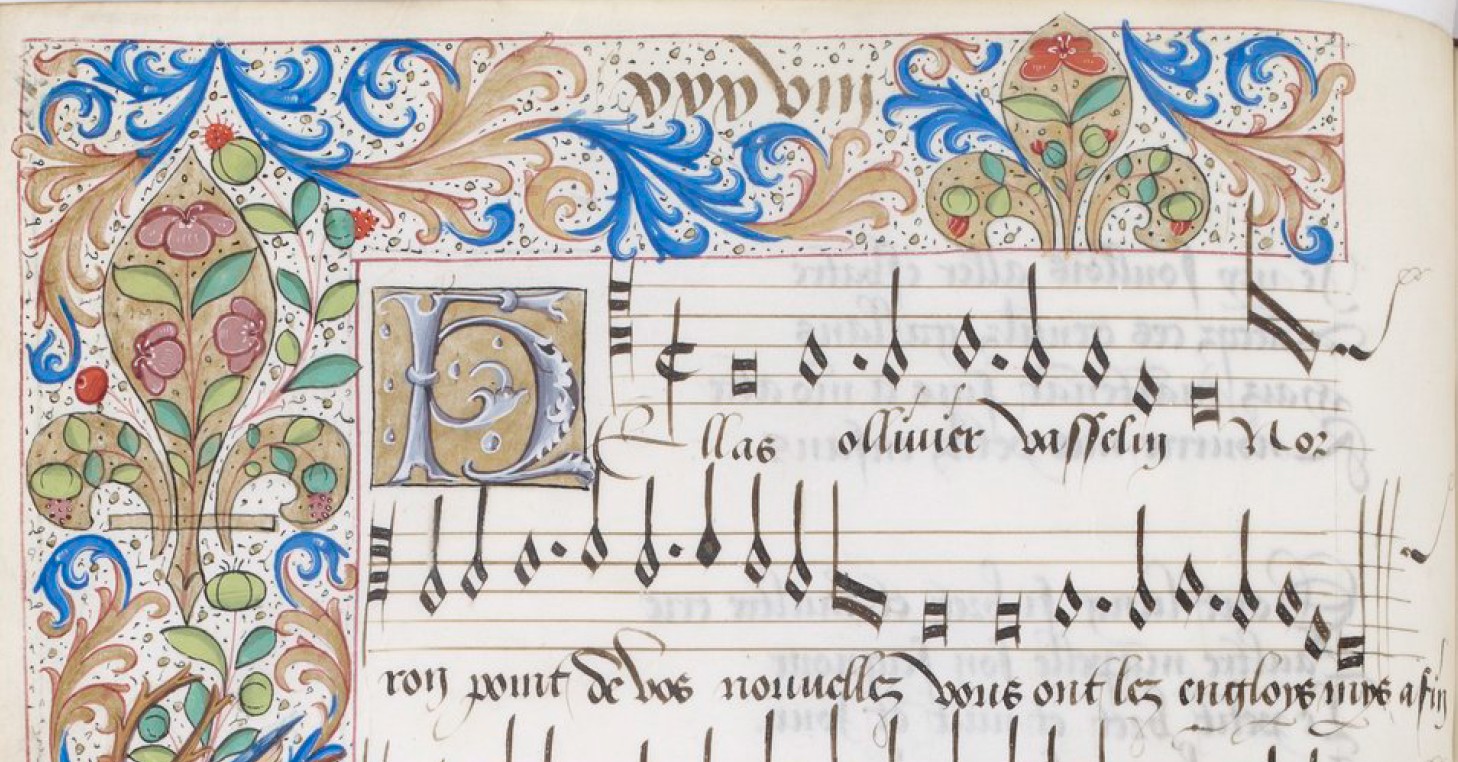 xxxviii
HEllas ollivier vasselin N or
ron point de vos nouuellez vous ont lez engloys mys a fin